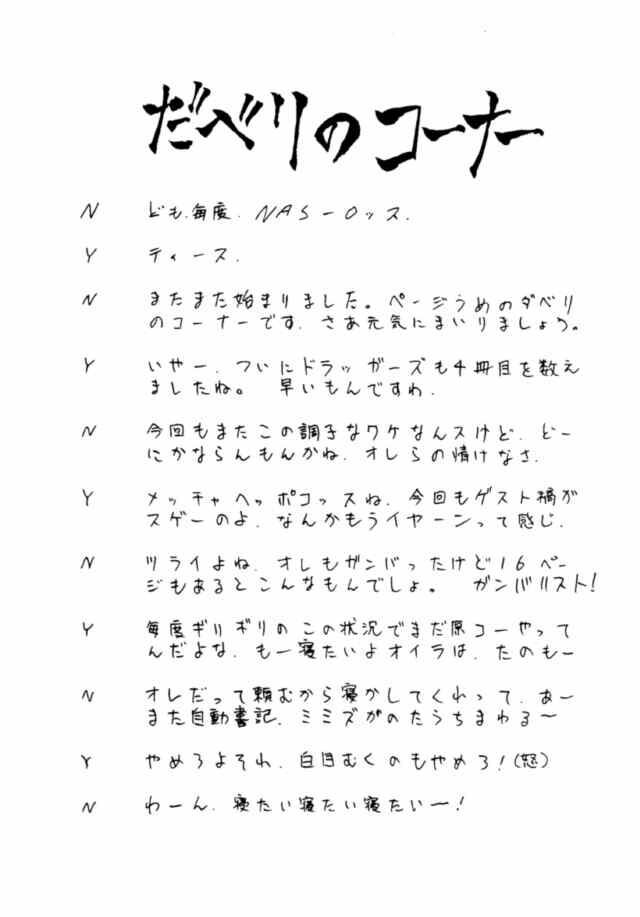 だべりのコーナー
N ども、毎度、NAS-Oッス、
Y ティース、
N またまた始まりました。ページうめのダベリ
のコーナーです、さあ元気にまいりましょう。
Y いやー、ついにドラッガーズも4冊目を数え
ましたね。 早いもんですわ、
N 今回もまたこの調子なワケなんスけど、どー
にかならんもんかね、オレらの情けなさ、
Y メッチャヘッポコッスね、今回もゲスト橘が
スゲーのよ、なんかもうイヤーンって感じ、
N ツライよね、オレもガンバったけど16ペー
ジもあるとこんなもんでしょ。 ガンバリスト!
Y 毎度ギリギリのこの状況でまだ原コーやって
んだよな、もー寝たいよオイラは、たのもー
N オレだって頼むから寝かしてくれって、あー
また自動書記、ミミズがのたうちまわる〜
Y やめろよそれ、白目むくのもやめろ!(怒)
N わーん、寝たい寝たい寝たい〜!